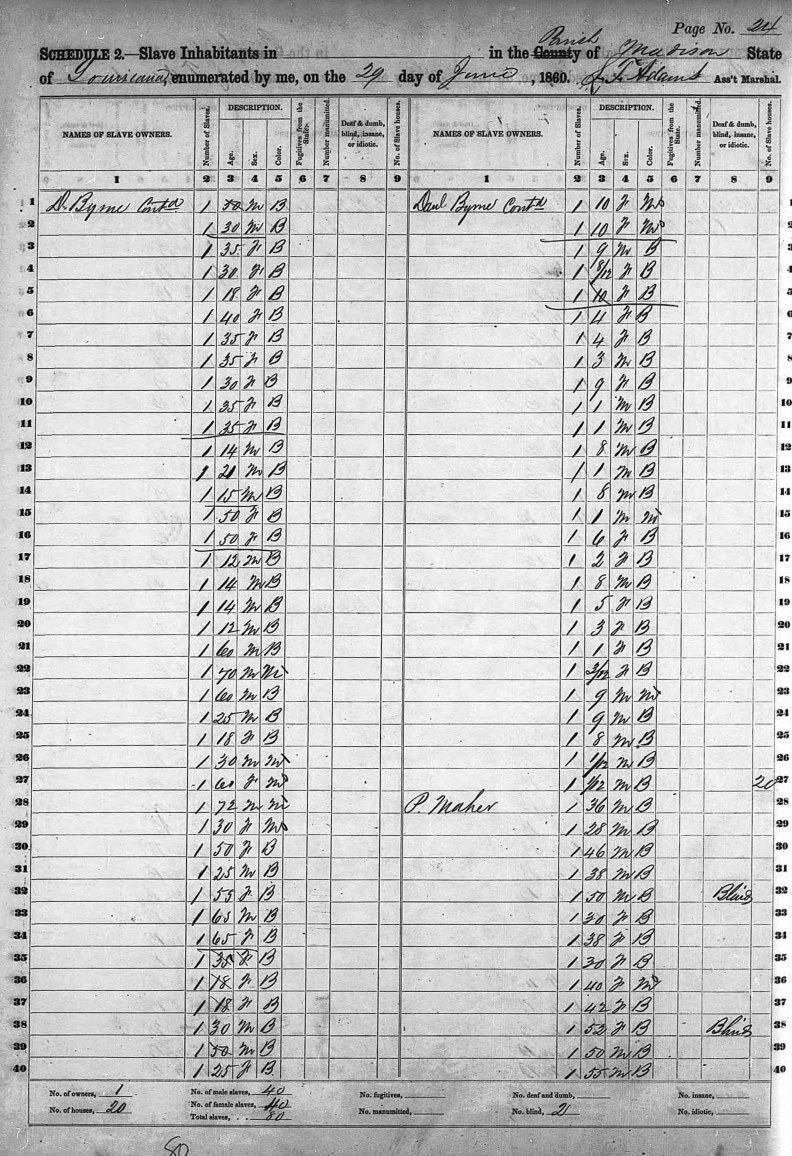 Page No. 24
SCHEDULE 2.—Slave Inhabitants in in the County Parish of Madison State
of Louisiana, enumerated by me, on the 29 day of June, 1860. Adams Ass't Marshal.
NAMES OF SLAVE OWNERS. Number of Slaves. DESCRIPTION. Age. Sex. Color. Fugitives from the State. Number manumitted. Deaf & dumb, blind, insane, or idiotic. No. of Slave houses. NAMES OF SLAVE OWNERS. Number of Slaves. DESCRIPTION. Age. Sex. Color. Fugitives from the State. Number manumitted. Deaf & dumb, blind, insane, or idiotic. No. of Slave houses.
1 2 3 4 5 6 7 8 9 1 2 3 4 5 6 7 8 9
1 D. Byrne Contd 1 M B Danl Byrne Contd 1 10 F M 1
2 1 30 M B 1 10 F M 2
3 1 35 F B 1 9 M B 3
4 1 30 F B 1 /12 F B 4
5 1 18 F B 1 10 F B 5
6 1 40 F B 1 4 F B 6
7 1 35 F B 1 4 F B 7
8 1 35 F B 1 3 M B 8
9 1 30 F B 1 9 F B 9
10 1 35 F B 1 1 M B 10
11 1 35 F B 1 1 M B 11
12 1 14 M B 1 8 M B 12
13 1 21 M B 1 1 M B 13
14 1 15 M B 1 8 M B 14
15 1 50 F B 1 1 M M 15
16 1 50 F B 1 6 F B 16
17 1 12 M B 1 2 F B 17
18 1 14 M B 1 8 M B 18
19 1 14 M B 1 5 F B 19
20 1 12 M B 1 3 F B 20
21 1 60 M B 1 1 F B 21
22 1 70 M M 1 3/12 F B 22
23 1 60 M B 1 9 M M 23
24 1 25 M B 1 9 M B 24
25 1 18 F B 1 8 M B 25
26 1 30 M M 1 1/12 M B 26
27 1 60 F M 1 1/12 M B 20 27
28 1 72 M M P. Maher 1 36 M B 28
29 1 30 F M 1 28 M B 29
30 1 50 F B 1 46 M B 30
31 1 25 M B 1 38 M B 31
32 1 55 F B 1 50 M B Blind 32
33 1 65 M B 1 30 F B 33
34 1 65 F B 1 38 F B 34
35 1 35 F B 1 30 F B 35
36 1 18 F B 1 40 F M 36
37 1 18 F B 1 42 F B 37
38 1 30 M B 1 52 F B Blind 38
39 1 50 M B 1 50 M B 39
40 1 25 F B 1 55 M B 40
No. of owners, 1 No. of male slaves, 40 No. fugitives, No. deaf and dumb, No. insane,
No. of houses, 20 No. of female slaves, 40 No. manumitted, No. blind, 2 No. idiotic,
Total slaves, 80
80